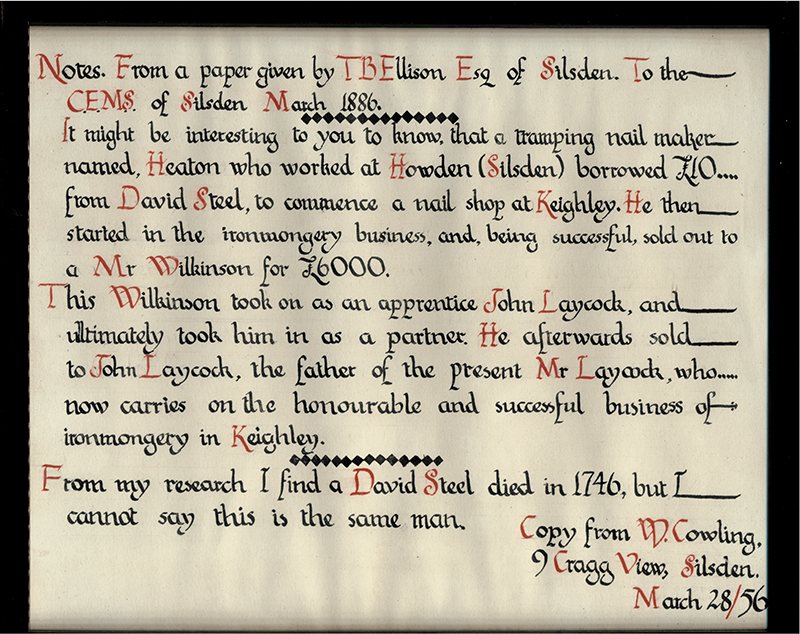 Notes. From a paper given by T B Ellison Esq of Silsden. To the
C.E.M.S. of Silsden March 1886.
It might be interesting to you to know, that a tramping nail maker
named, Heaton who worked at Howden (Silsden) borrowed £10....
from David Steel, to commence a nail shop at Keighley. He then
started in the ironmongery business, and, being successful, sold out to
a Mr Wilkinson for £6000.
This Wilkinson took on as an apprentice John Laycock, and
ultimately took him in as a partner. He afterwards sold
to John Laycock, the father of the present Mr Laycock, who.....
now carries on the honourable and successful business of
ironmongery in Keighley.
From my research I find a David Steel died in 1746, but I
cannot say this is the same man.
Copy from W. Cowling,
9 Cragg View, Silsden.
March 28/56